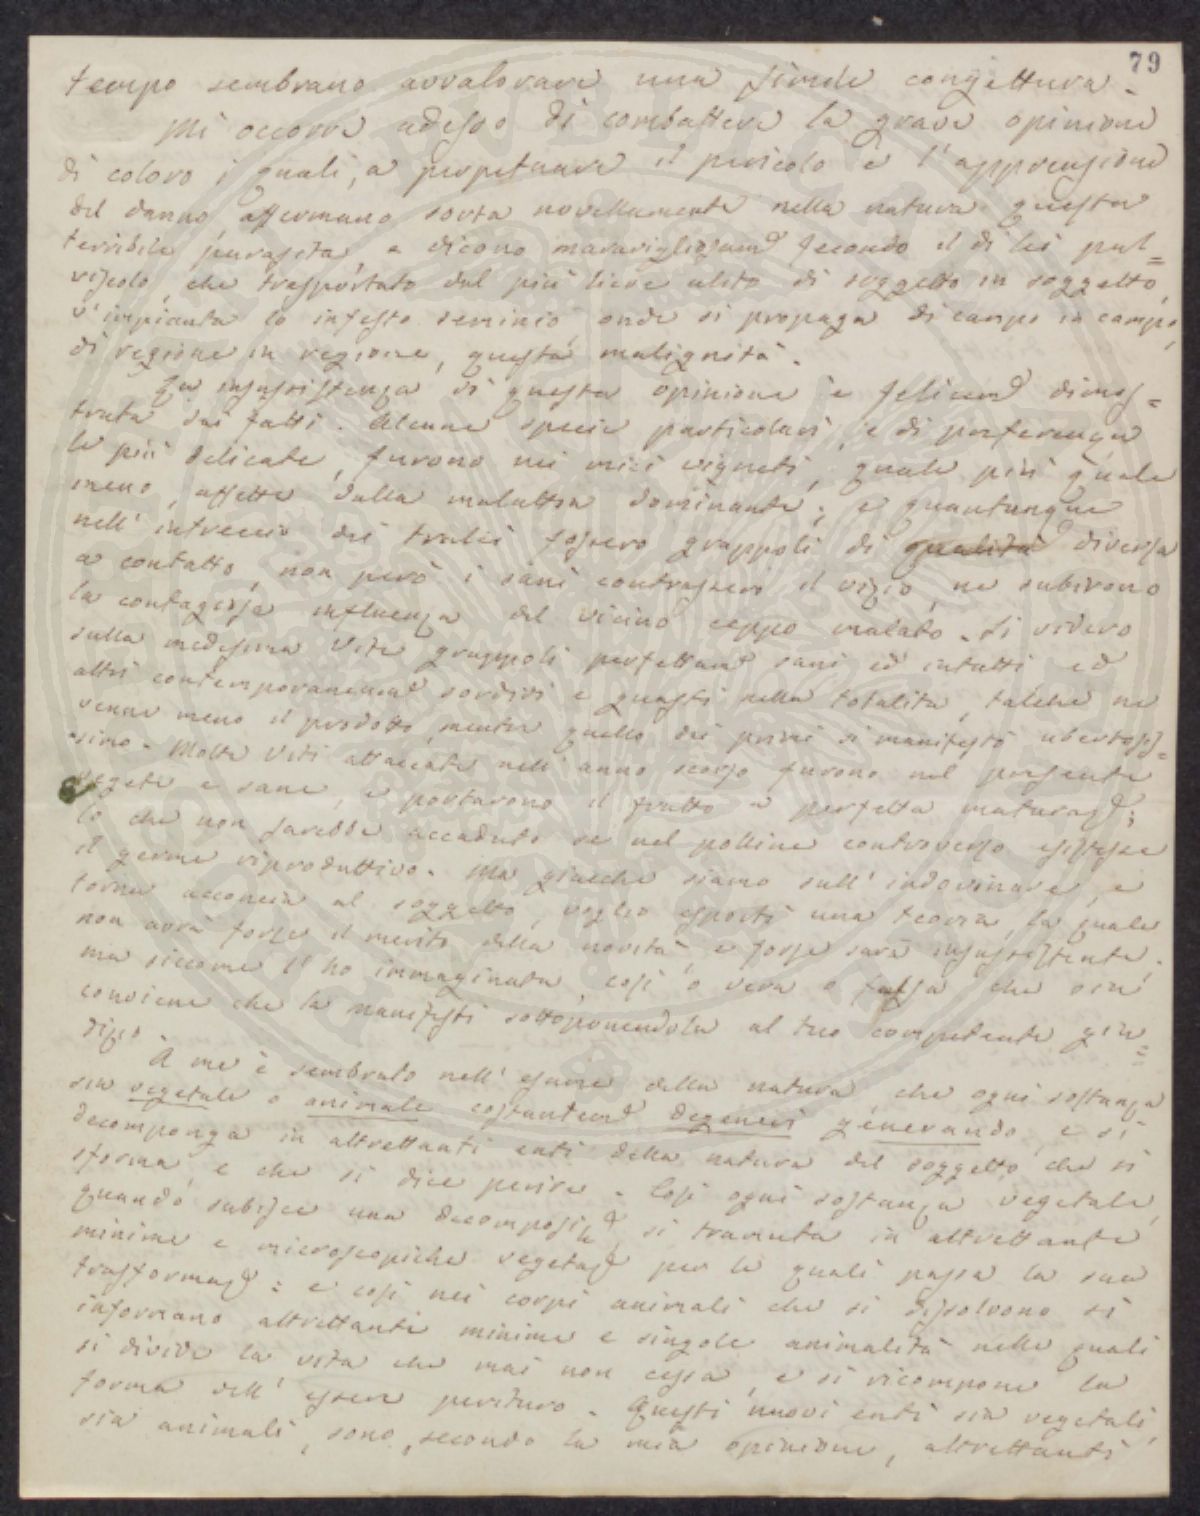 79
tempo sembrano avvalorare una simile congettura.
Mi occorre adesso di combattere la grave opinione
di coloro i quali, a perpetuare il pericolo e l'apprensione
del danno, affermano sorta novellamente nella natura questa
terribile parasita, e dicono maravigliosam.e secondo il di lei pul=
viscolo, che trasportato dal più lieve alito di soggetto in soggetto,
v'impianta lo infesto seminio onde si propaga di campo in campo,
di regione in regione, questa malignità.
La insussistenza di questa opinione è felicem.e dimos=
trata dai fatti. Alcune specie particolari, e di preferenza
le più delicate, furono nei miei vigneti, quale più quale
meno, affette dalla malattia dominante; e quantunque
nell'intreccio dei tralci fossero grappoli di qualità diversa
a contatto, non però i sani contrassero il vizio, ne subirono
la contagiosa influenza del vicino ceppo malato. Si videro
sulla medesima Vite grappoli perfettam.e sani ed intatti, ed
altri contemporaneam.e sordidi e guasti nella totalità, talchè ne
venne meno il prodotto, mentre quello dei primi si manifestò ubertosis=
simo. Molte Viti attaccate nell'anno scorso furono nel presente
vegete e sane, e portarono il frutto a perfetta maturaz.e;
lo che non sarebbe accaduto se nel polline controverso esistesse
il germe riproduttivo. Ma giacchè siamo sull'indovinare, e
torna acconcia al soggetto, voglio esporti una teoria, la quale
non avrà forse il merito della novità, e forse sarà insussistente;
ma siccome l'ho immaginata, così o vera o falsa che sia
conviene che la manifesti sottoponendola al tuo competente giu=
dizio.
A me è sembrato nell'esame della natura, che ogni sostanza
sia vegetale o animale costantem.e degeneri generando, e si
decomponga in altrettanti enti della natura del soggetto che si
sforma, e che si dice perire. Così ogni sostanza vegetale,
quando subisce una decomposiz.e, si tramuta in altrettante
minime e microscopiche vegetaz.i per le quali passa la sua
trasformaz.e: e così nei corpi animali che si dissolvono si
informano altrettante minime e singole animalità nelle quali
si divide la vita che mai non cessa, e si ricompone la
forma dell'essere perituro. Questi nuovi enti sia vegetali,
sia animali, sono, secondo la mia opinione, altrettanti